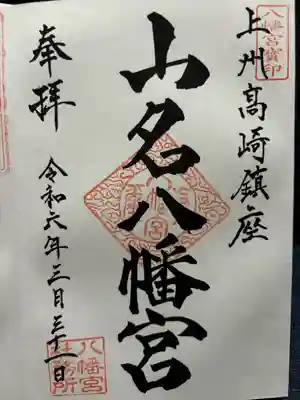 八幡宮寶印
上州高崎鎮座
山名八幡宮
奉拝
令和六年三月三十一日
八幡宮社務所